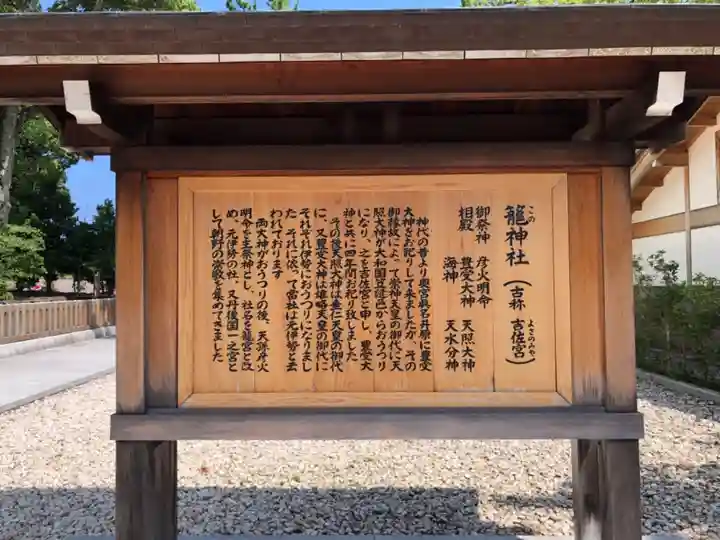 この
籠神社(古称 吉佐宮)
よさのみや
御祭神 彦火明命 天照大神
相殿 豊受大神 天水分神
海神
神代の昔より奥宮眞名井原に豊受
大神をお祀りして来ましたが、その
御縁故によって崇神天皇の御代に天
照大神が大和国笠縫邑からおうつり
になり、之を吉佐宮と申し、豊受大
神と共に四年間お祀り致しました
その後天照大神は垂仁天皇の御代
に、又豊受大神は雄略天皇の御代に
それぞれ伊勢におうつりになりまし
た それに依って當社は元伊勢と云
われております
両大神がおうつりの後、天孫彦火
明命を主祭神とし、社名を籠宮と改
め、元伊勢の社、又丹後国一之宮と
して朝野の崇敬を集めてきました